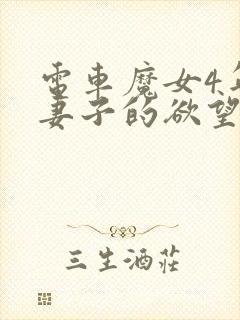 電車魔女4
妻子的欲望
三生酒莊